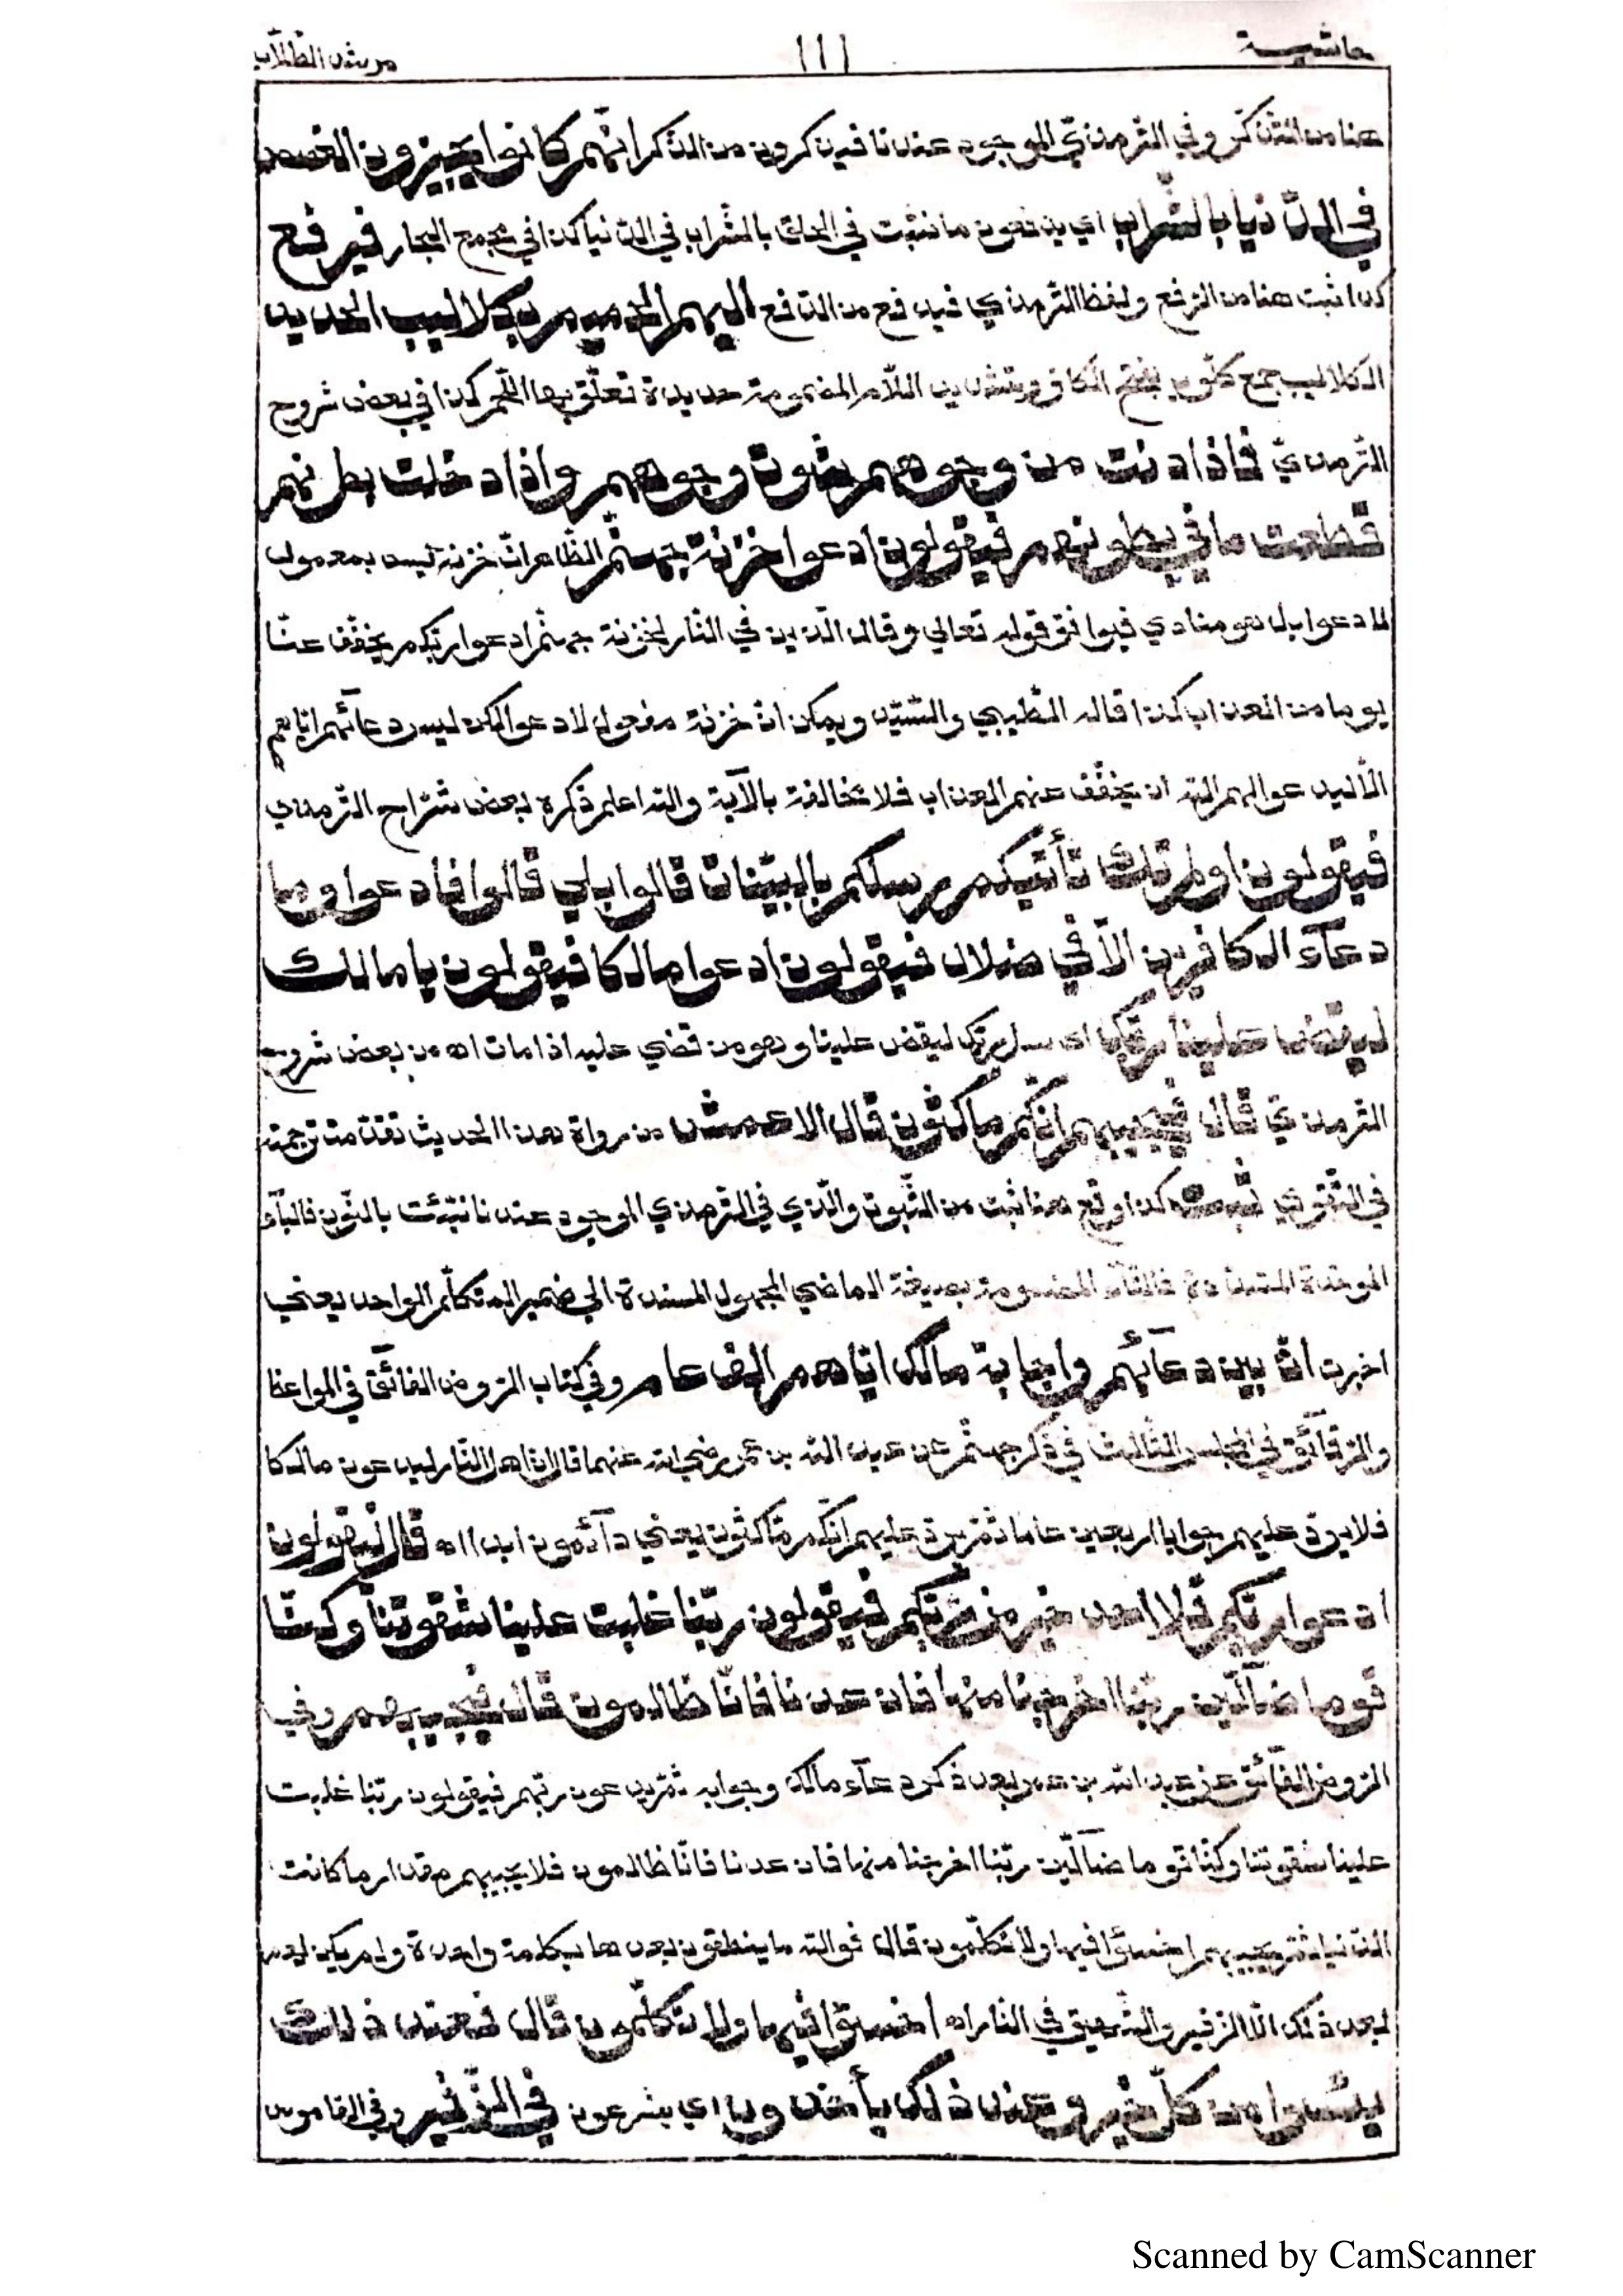 حاشية ١١١ مرشد الطلاب
هنا من التذكر وفي الترمذي الموجود عندنا فيذكرون من الذكر انهم كانوا يجيزون الغصص
في الدنيا بالشراب اي يدفعون ما نشبت في الحلق بالشراب في الدنيا كذا في مجمع البحار فيرفع
كذا ثبت هنا من الرفع ولفظ الترمذي فيدفع من الدفع اليهم الحميم بكلاليب الحديد
الكلاليب جمع كلوب بفتح الكاف وبتشديد اللام المضمومة حديدة تعلق بها اللحم كذا في بعض شروح
الترمذي فاذا دنت من وجوههم شوت وجوههم واذا دخلت بطونهم
قطعت ما في بطونهم فيقولون ادعوا خزنة جهنم الظاهر ان خزنة ليس بمعمول
لادعوا بل هو منادي فيوافق قوله تعالي وقال الذين في النار لخزنة جهنم ادعوا ربكم يخفف عنا
يوما من العذاب كذا قاله الطيبي والسيد ويمكن ان خزنة مفعول لادعوا لكن ليس دعائهم اياهم
الا ليدعوا لهم الله ان يخفف عنهم العذاب فلا مخالفة بالآية والله اعلم ذكره بعض شراح الترمذي
فيقولون اولم تك تأتيكم رسلكم بالبينات قالوا بلي قالوا فادعوا وما
دعآء الكافرين الا في ضلال فيقولون ادعوا مالكا فيقولون يا مالك
ليقض علينا ربك اي سل ربك ليقض علينا وهو من قضي عليه اذا مات اه من بعض شروح
الترمذي قال فيجيبهم انكم ماكثون قال الاعمش من رواة هذا الحديث تقدمت ترجمته
في التقوي ثبت كذا وقع هنا ثبت من الثبوت والذي في الترمذي الموجود عندنا نبئت بالنون فالبآء
الموحدة المشددة فالتآء المضمومة بصيغة الماضي المجهول المسندة الي ضمير المتكلم الواحد يعني
اخبرت ان بين دعآئهم واجابة مالك اياهم الف عام وفي كتاب الروض الفآئق في المواعظ
والرقآئق في المجلس الثالث في ذكر جهنم عن عبد الله بن عمر رضي الله عنهما قال ان اهل النار ليدعون مالكا
فلا يرد عليهم جوابا اربعين عاما ثم يرد عليهم انكم ماكثون يعني دآئمون ابدا اه قال فيقولون
ادعوا ربكم فلا احد خير من ربكم فيقولون ربنا غلبت علينا شقوتنا وكنا
قوما ضآلين ربنا اخرجنا منها فان عدنا فانا ظالمون قال فيجيبهم وفي
الروض الفآئق عن عبد الله بن عمر بعد ذكر دعآء مالك وجوابه ثم يدعون ربهم فيقولون ربنا غلبت
علينا شقوتنا وكنا قوما ضآلين ربنا اخرجنا منها فان عدنا فانا ظالمون فلا يجيبهم مقدار ما كانت
الدنيا ثم يجيبهم اخسؤا فيها ولا تكلمون قال فوالله ما ينطقون بعدها بكلمة واحدة ولم يكن لهم
بعد ذلك الا الزفير والشهيق في النار اه اخسؤا فيها ولا تكلمون قال فعند ذلك
يئسوا من كل خير وعند ذلك يأخذون اي يشرعون في الزفير وفي القاموس
Scanned by CamScanner